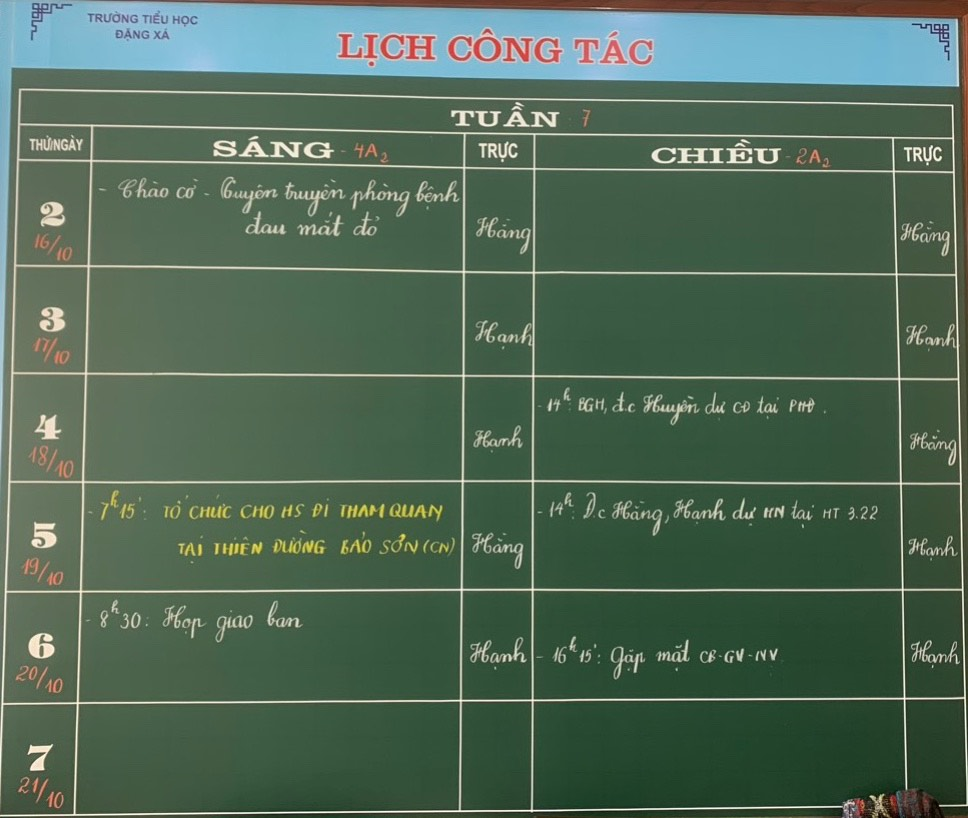 TRƯỜNG TIỂU HỌC
ĐẶNG XÁ
LỊCH CÔNG TÁC
TUẦN 7
THỨ/NGÀY
SÁNG - 4A2
TRỰC
CHIỀU - 2A2
TRỰC
2
16/10
- Chào cờ - Tuyên truyền phòng bệnh
đau mắt đỏ
Hằng
Hằng
3
17/10
Hạnh
Hạnh
4
18/10
Hạnh
- 14h: BGH, đ.c Huyền dự CĐ tại
Hằng
5
19/10
- 7h15': TỔ CHỨC CHO HS ĐI THAM QUAN
TẠI THIÊN ĐƯỜNG BẢO SƠN (CN)
Hằng
- 14h: Đ.c Hằng, Hạnh dự HN tại HT 3.22
Hạnh
6
20/10
- 8h30: Họp giao ban
Hạnh
- 16h15': Gặp mặt CB-GV-NV
Hạnh
7
21/10